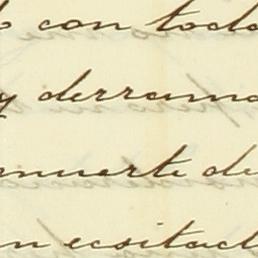 con todo
y derrama
muerte de
n ecsitad